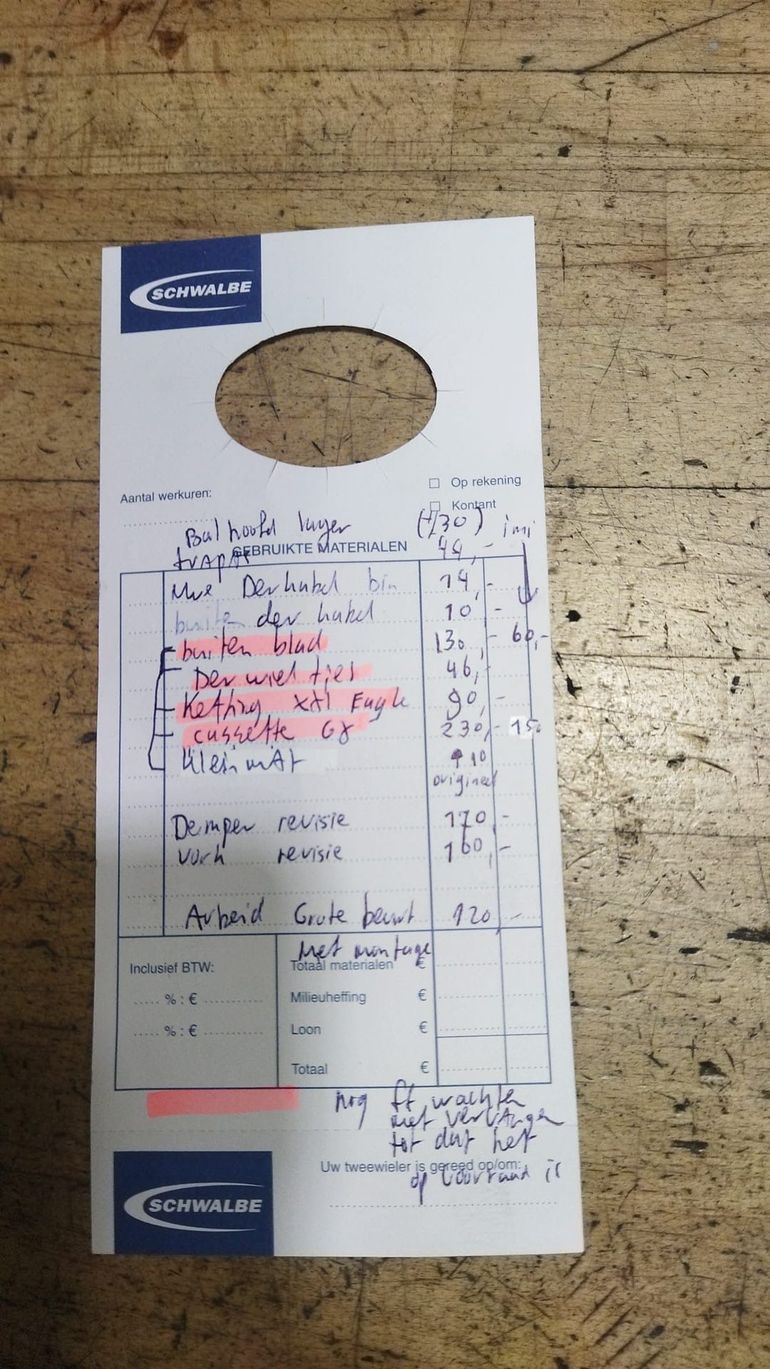 SCHWALBE
Op rekening
Aantal werkuren:
Kontant
Balhoofd lager (+/30) imi
trapas 44,-
GEBRUIKTE MATERIALEN
Derkabel bin 14,-
buiten der kabel 10,-
buiten blad 130,- 60,-
Derwieltjes 46,-
Ketting XX1 Eagle 90,-
cassette GX 230,- 150
klein mat 10
origineel
Demper revisie 170,-
Vork revisie 160,-
Arbeid Grote beurt 120,-
Met montage
Inclusief BTW:
Totaal materialen €
% : € Milieuheffing €
% : € Loon €
Totaal €
nog ff wachten
met vervangen
tot dat het
Uw tweewieler is gereed op/om:
op voorraad is
SCHWALBE